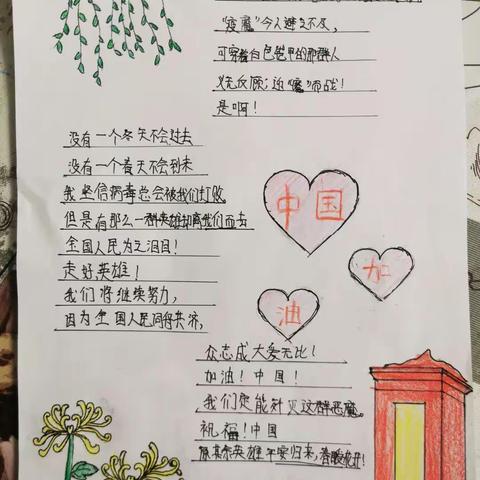 "疫魔"令人避之不及,
可穿着白色铠甲的那群人
义无反顾:迎"魔"而战!
是啊!
没有一个冬天不会过去
没有一个春天不会到来
我坚信病毒总会被我们打败
但是有那么一群英雄却离我们而去
全国人民为之泪目!
走好英雄!
我们将继续努力,
因为全国人民同舟共济,
中国
加
油
众志成大爱无比!
加油!中国!
我们定能歼灭这群恶魔。
祝福!中国
英雄平安归来,